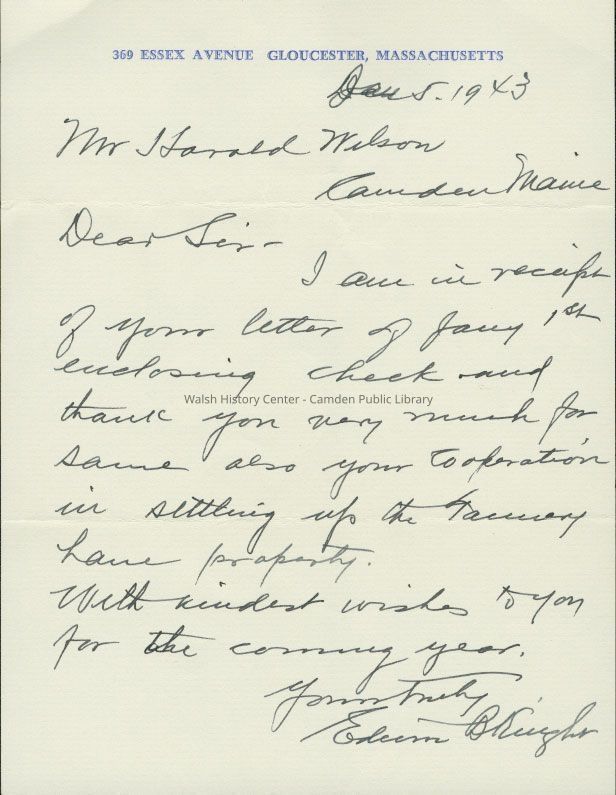 369 ESSEX AVENUE GLOUCESTER, MASSACHUSETTS
Jan 5. 1943
Mr Harald Wilson
Camden Maine
Dear Sir-
I am in receipt
of your letter of Jany 1st
enclosing check and
Walsh History Center - Camden Public Library
thank you very much for
same also your cooperation
in settling up the Tannery
Lane property.
With kindest wishes to you
for the coming year.
Yours truly,
Edwin B Knight